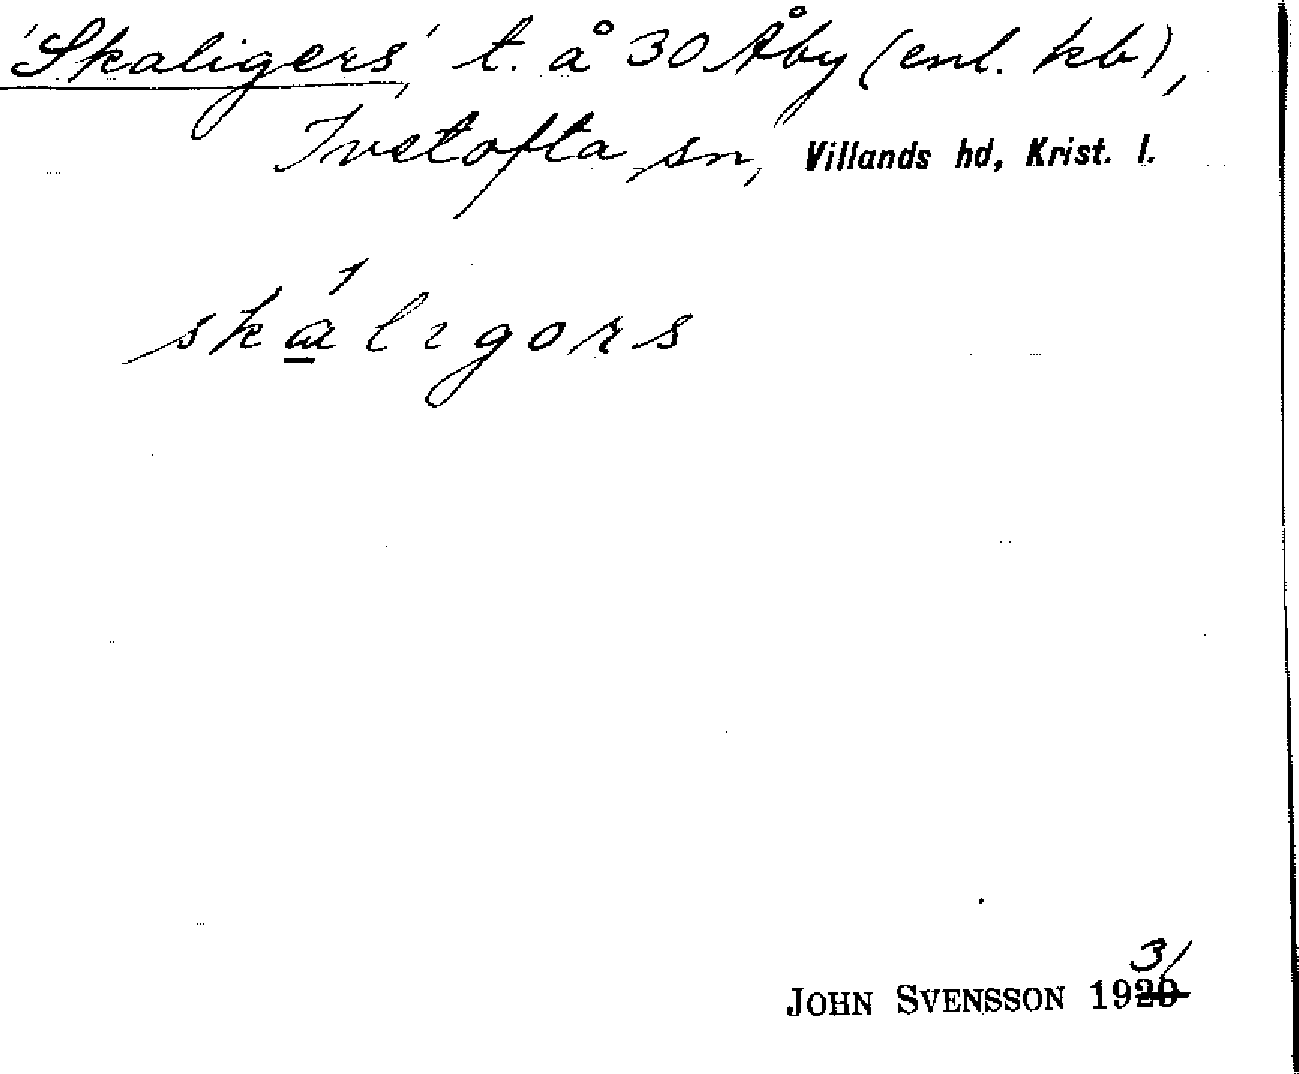 'Skaligers' t. å 30 Åby (enl. kb),
Ivetofta sn, Villands hd, Krist. l.
skáligors
JOHN SVENSSON 1931